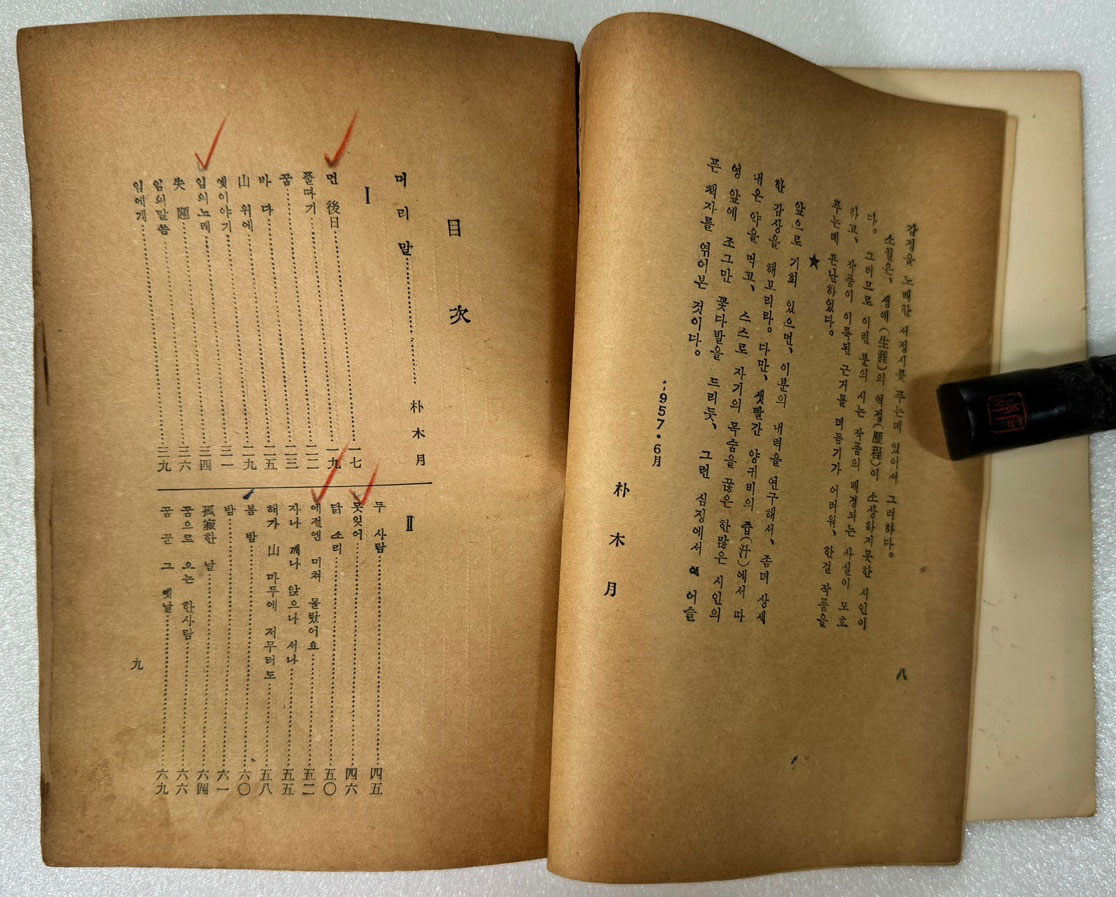 감정을 노래한 서정시를 푸는데 있어서 그러하다。
소월은、 생애(生涯)의 역정(歷程)이 소상하지못한 시인이
다。 그러므로 이런 분의 시는 작품의 배경되는 사실이 모호
하고、 작품이 이룩된 근거를 더듬기가 어려워、 한결 작품을
푸는데 곤난하였다。
★
앞으로 기회 있으면、 이분의 내력을 연구해서、 좀더 상세
한 감상을 해보리라。 다만、 샛빨간 양귀비의 즙(汁)에서 따
내온 약을 먹고、 스스로 자기의 목숨을 끊은 한많은 시인의
영 앞에 조그만 꽃다발을 드리듯、 그런 심정에서 어슬
픈 책자를 엮어본 것이다。
1957·6月
朴木月
八
目次
머리말 朴木月
Ⅰ
먼 後日 一七
풀따기 一九
꿈 二二
바다 二三
山 위에 二五
옛이야기 二九
임의노래 三一
失題 三四
임의말씀 三六
임에게 三九
Ⅱ
두 사람 四五
못잊어 四六
닭 소리 五〇
예전엔 미쳐 몰랐어요 五二
자나 깨나 앉으나 서나 五五
해가 山 마루에 저무러도 五八
봄 밤 六〇
밤 六一
孤寂한 날 六四
꿈으로 오는 한사람 六六
꿈 꾼 그 옛날 六九
九